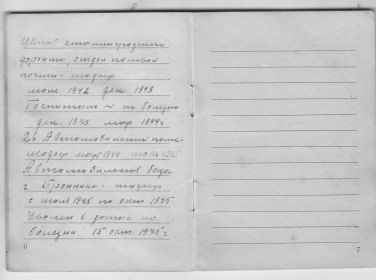 Штаб сталинградского
фронта, отдел полевой
почты - шофер
июль 1942 дек 1943
Госпиталь по болезни
дек. 1943 мар 1944г
Автомобильный полк
шофер март 1944 июль 1945
Автомобильная база
г. Бронницы - шофер
с июль 1945 по окт 1945
Уволен в запас по
болезни 15 окт. 1945г
6
7